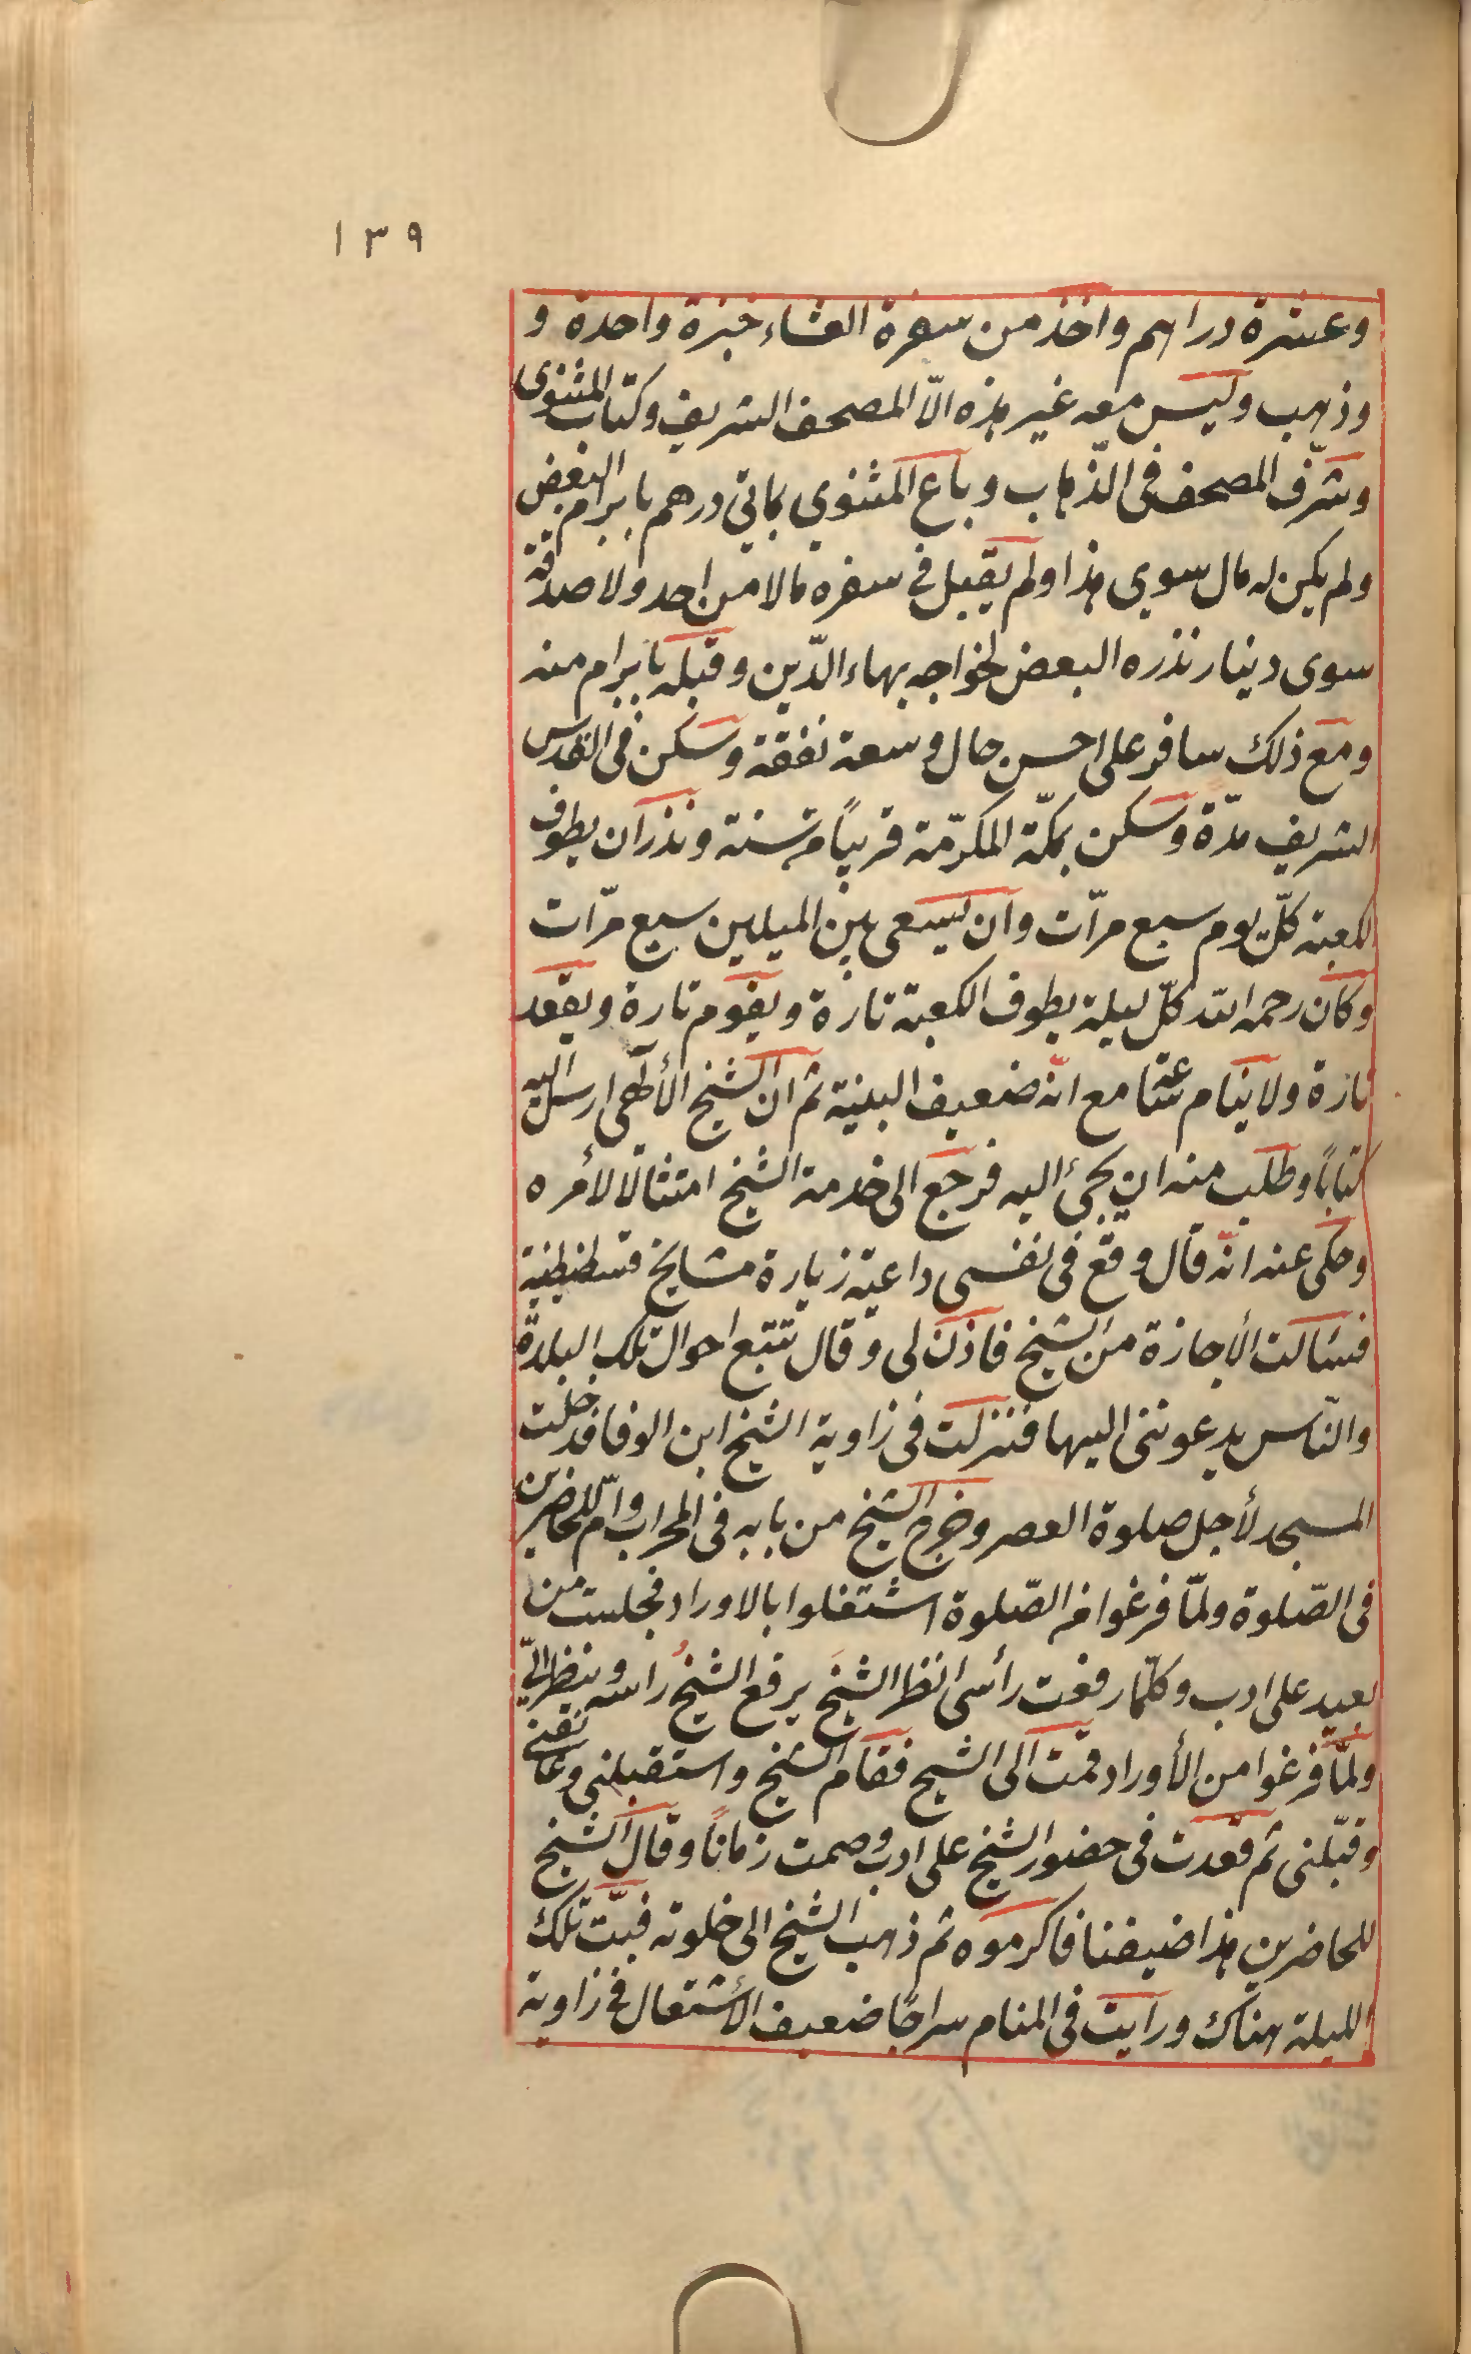 ١٣٩
وعشرة دراهم واخذ من سفرة العشاء خبزة واحدة و
وذهب وليس معه غير هذه الّا المصحف الشريف وكتاب المثنوى
وسرّف المصحف فى الذّهاب وباع المثنوي بمأتي درهم بابرام البعض
ولم يكن له مال سوي هذا ولم يقبل في سفره مالا من احد ولا صدقة
سوى دينار نذره البعض لخواجه بهاء الدّين وقبله بابرام منه
ومع ذلك سافر على احسن حال وسعة نفقة وسكن فى القدس
الشريف مدّة وسكن بمكّة المكرّمة قريبًا من سنة ونذر ان يطوف
الكعبة كلّ يوم سبع مرّات وان يسعى بين الميلين سبع مرّات
وكان رحمه الله كلّ ليلة يطوف الكعبة تارة ويقوم تارة ويقعد
تارة ولا ينام مع انّه ضعيف البنية ثم ان الشيخ الألٓهى ارسل اليه
كتابًا وطلب منه ان يجئ اليه فرجع الى خدمة الشيخ امتثالًا لأمره
وحكى عنه انّه قال وقع فى نفسى داعية زيارة مشايخ قسطنطنية
فسئالت الأجازة من الشيخ فاذن لى وقال تتبع احوال تلك البلدة
والنّاس يدعوننى اليها فنزلت فى زاوية الشيخ ابن الوفا فدخلت
المسجد لأجل صلوة العصر وخرج الشيخ من بابه فى المحراب وامّ للحاضرين
فى الصّلوة ولمّا فرغوا من الصّلوة اشتغلوا بالاوراد فجلست من
بعيد على ادب وكلّما رفعت رأسى انظر الشيخَ يرفع الشيخُ راسه وينظر اليّ
ولمّا فرغوا من الأوراد قمت الى الشيخ فقام الشيخ واستقبلني وعانقنى
وقبّلنى ثم قعدت فى حضور الشيخ على ادب وصمت زمانًا وقال الشيخ
للحاضرين هذا ضيفنا فاكرموه ثم ذهب الشيخ الى خلوته فبتّ تلك
الليلة هناك ورايت فى المنام سراجًا ضعيف الأشتعال في زاوية